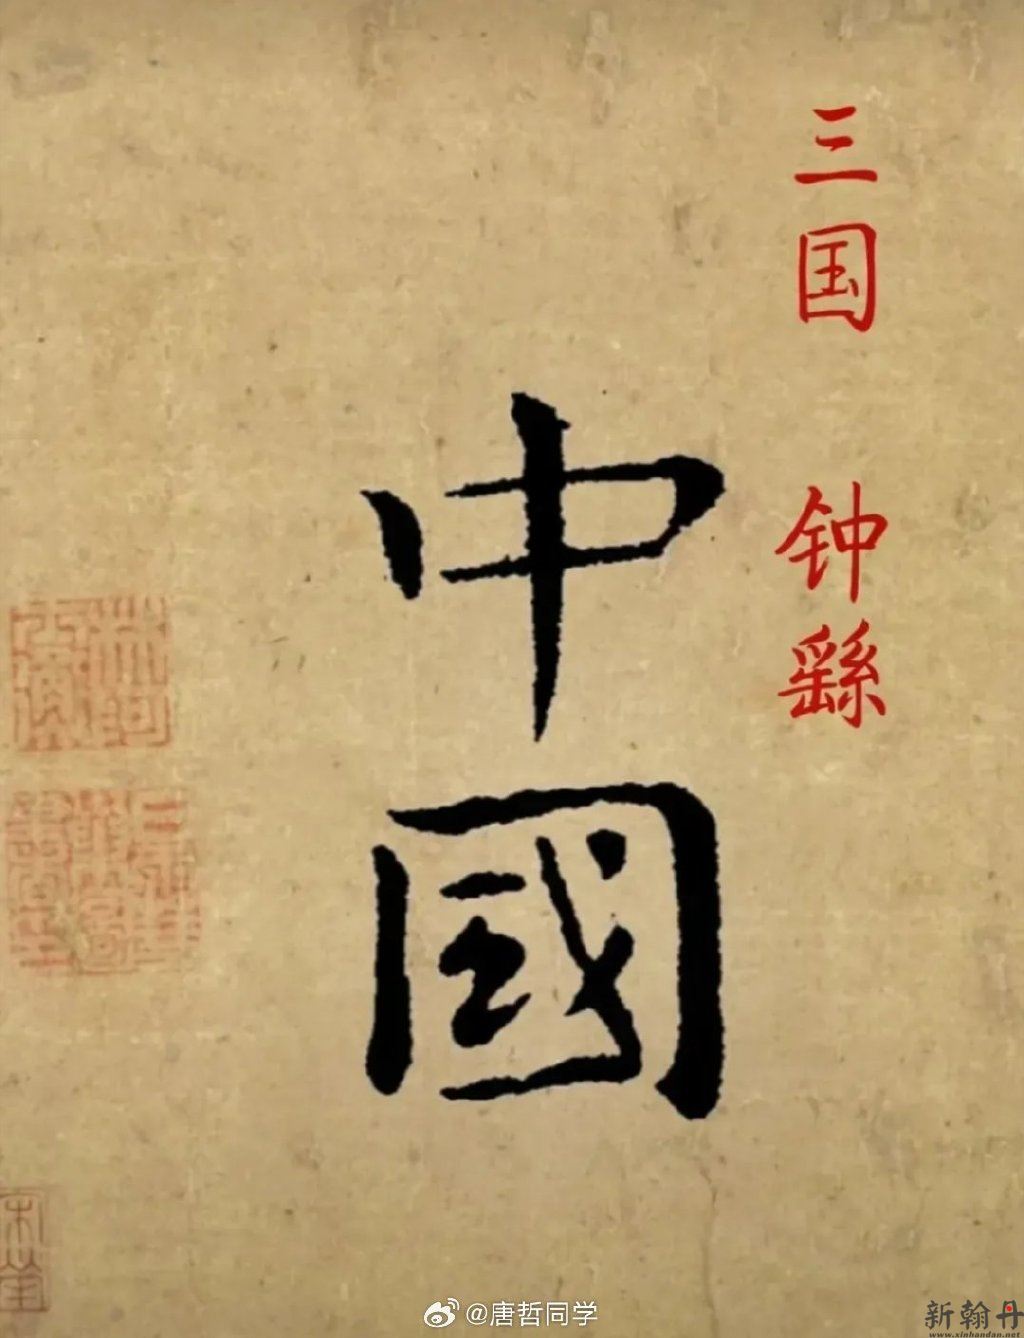 三国 钟繇
中國
@唐哲同学
新翰丹
www.xinhandan.net